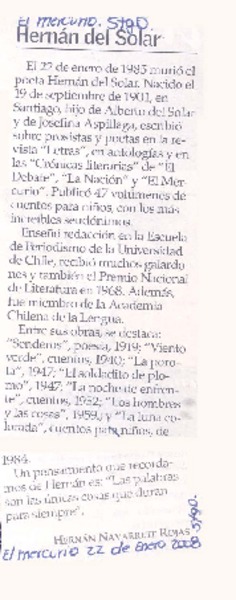 El mercurio. Stgo
Hernán del Solar
El 22 de enero de 1985 murió el
poeta Hernán del Solar. Nacido el
19 de septiembre de 1901, en
Santiago, hijo de Alberto del Solar
y de Josefina Aspillaga, escribió
sobre prosistas y poetas en la re-
vista "Letras", en antologías y en
las "Crónicas literarias" de "El
Debate", "La Nación" y "El Mer-
curio". Publicó 47 volúmenes de
cuentos para niños, con los más
increíbles seudónimos.
Enseñó redacción en la Escuela
de Periodismo de la Universidad
de Chile, recibió muchos galardo
nes y también el Premio Nacional
de Literatura en 1968. Además,
fue miembro de la Academia
Chilena de la Lengua.
Entre sus obras, se destaca:
"Senderos", poesía, 1919; "Viento
verde", cuentos, 1940; "La poro-
ta", 1947; "El soldadito de plo-
mo", 1947; "La noche de enfren-
te", cuentos, 1952; "Los hombres
y las cosas", 1959, y "La luna co-
lorada", cuentos para niños, de
1984.
Un pensamiento que recorda-
mos de Hernán es: "Las palabras
son las únicas cosas que duran
para siempre".
HERNÁN NAVARRETE ROJAS
El mercurio 22 de Enero 2008 Stgo.